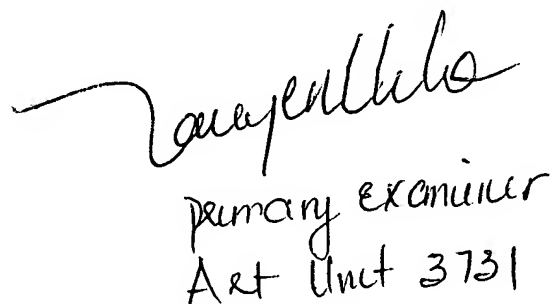 primary examiner
Art Unit 3731